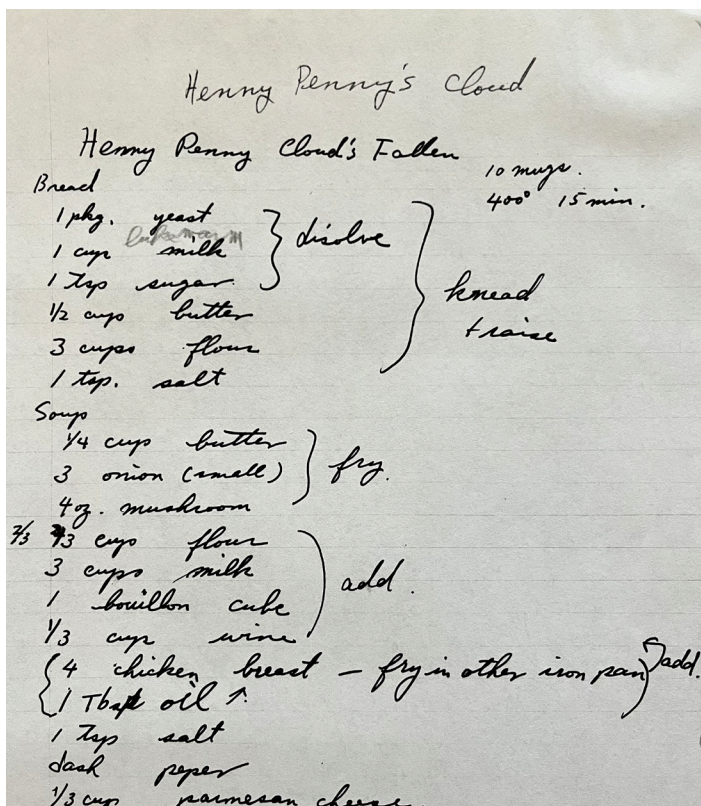 Henny Penny's Cloud
Henny Penny Cloud's Fallen
10 mugs.
400° 15 min.
Bread
1 pkg. yeast
1 cup lukewarm milk
1 tsp sugar.
disolve
1/2 cup butter
3 cups flour
1 tsp. salt
knead
+ raise
Soup
1/4 cup butter
3 onion (small)
4 oz. mushroom
fry.
2/3 2/3 cup flour
3 cups milk
1 bouillon cube
1/3 cup wine
add.
4 chicken breast – fry in other iron pan add.
1 Tbsp oil ↑
1 tsp salt
dash peper
1/3 cup parmesan cheese.